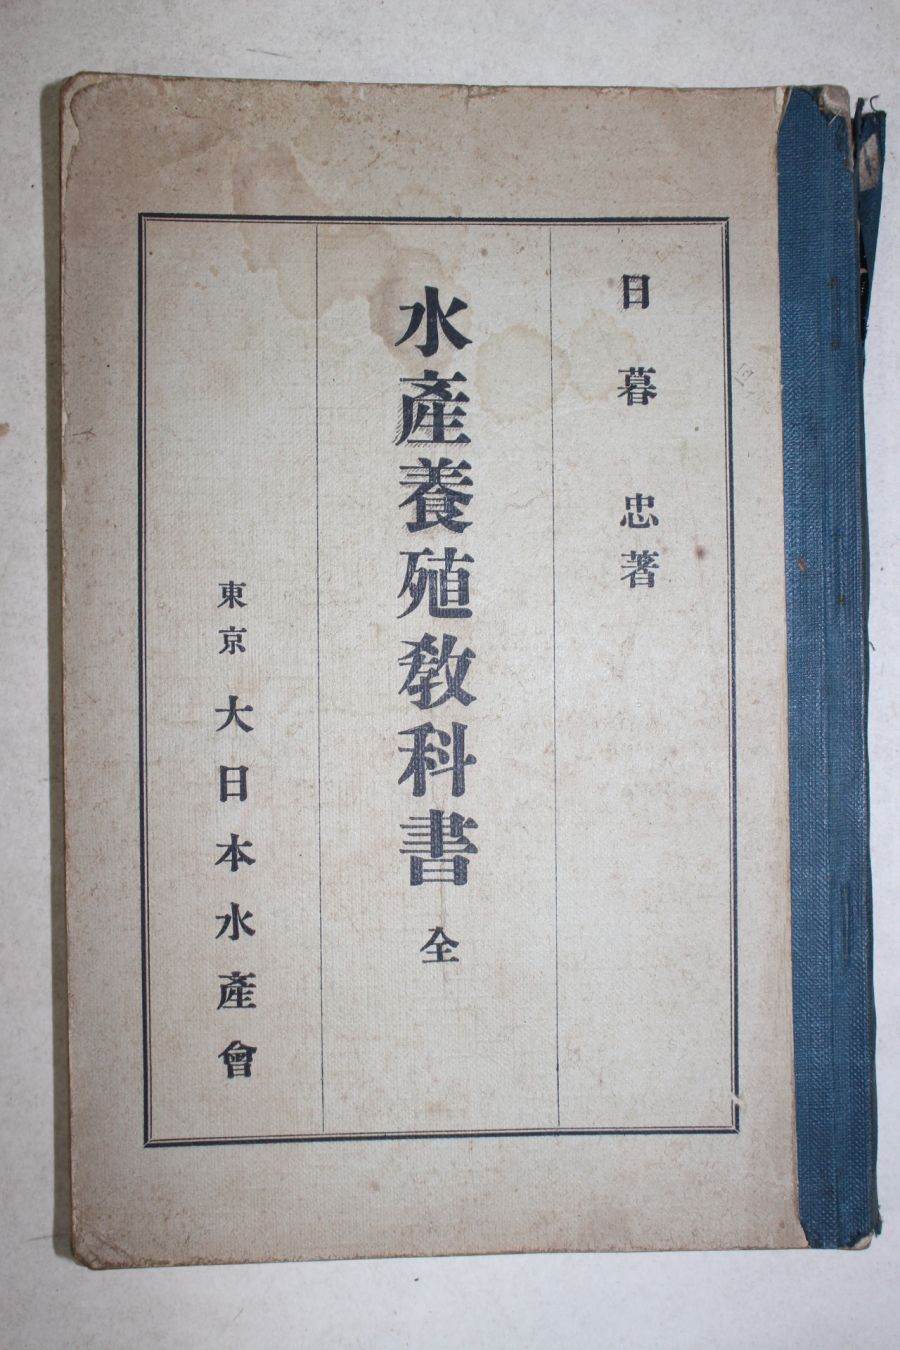 日暮忠著
水產養殖敎科書 全
東京 大日本水產會